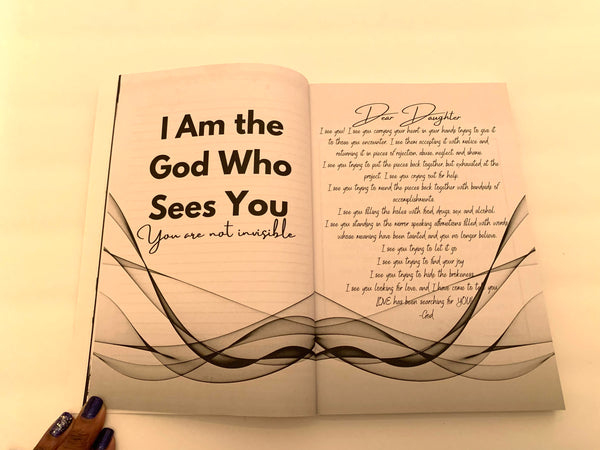 I Am the
God Who
Sees You
You are not invisible
Dear Daughter
I see you! I see you carrying your heart in your hands trying to give it
to those you encounter. I see them accepting it with malice and
returning it in pieces of rejection, abuse, neglect, and shame.
I see you trying to put the pieces back together, but exhausted at the
project. I see you crying out for help.
I see you trying to mend the pieces back together with bandaids of
accomplishments.
I see you filling the holes with food, drugs, sex and alcohol.
I see you standing in the mirror speaking affirmations filled with words
whose meaning have been tainted, and you no longer believe.
I see you trying to let it go
I see you trying to find your joy
I see you trying to hide the brokenness
I see you looking for love, and I have come to tell you
LOVE has been searching for YOU!
-God